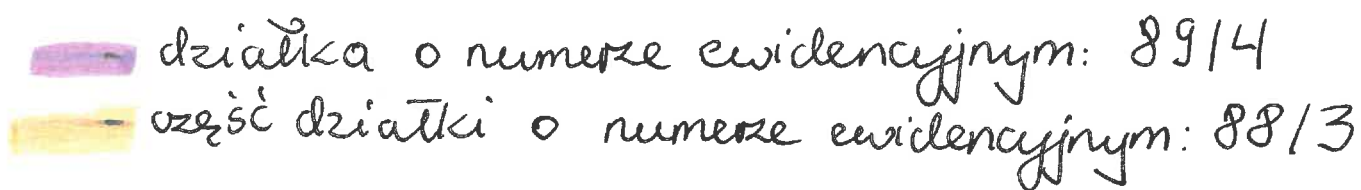 działka o numerze ewidencyjnym: 89/4
część działki o numerze ewidencyjnym: 88/3